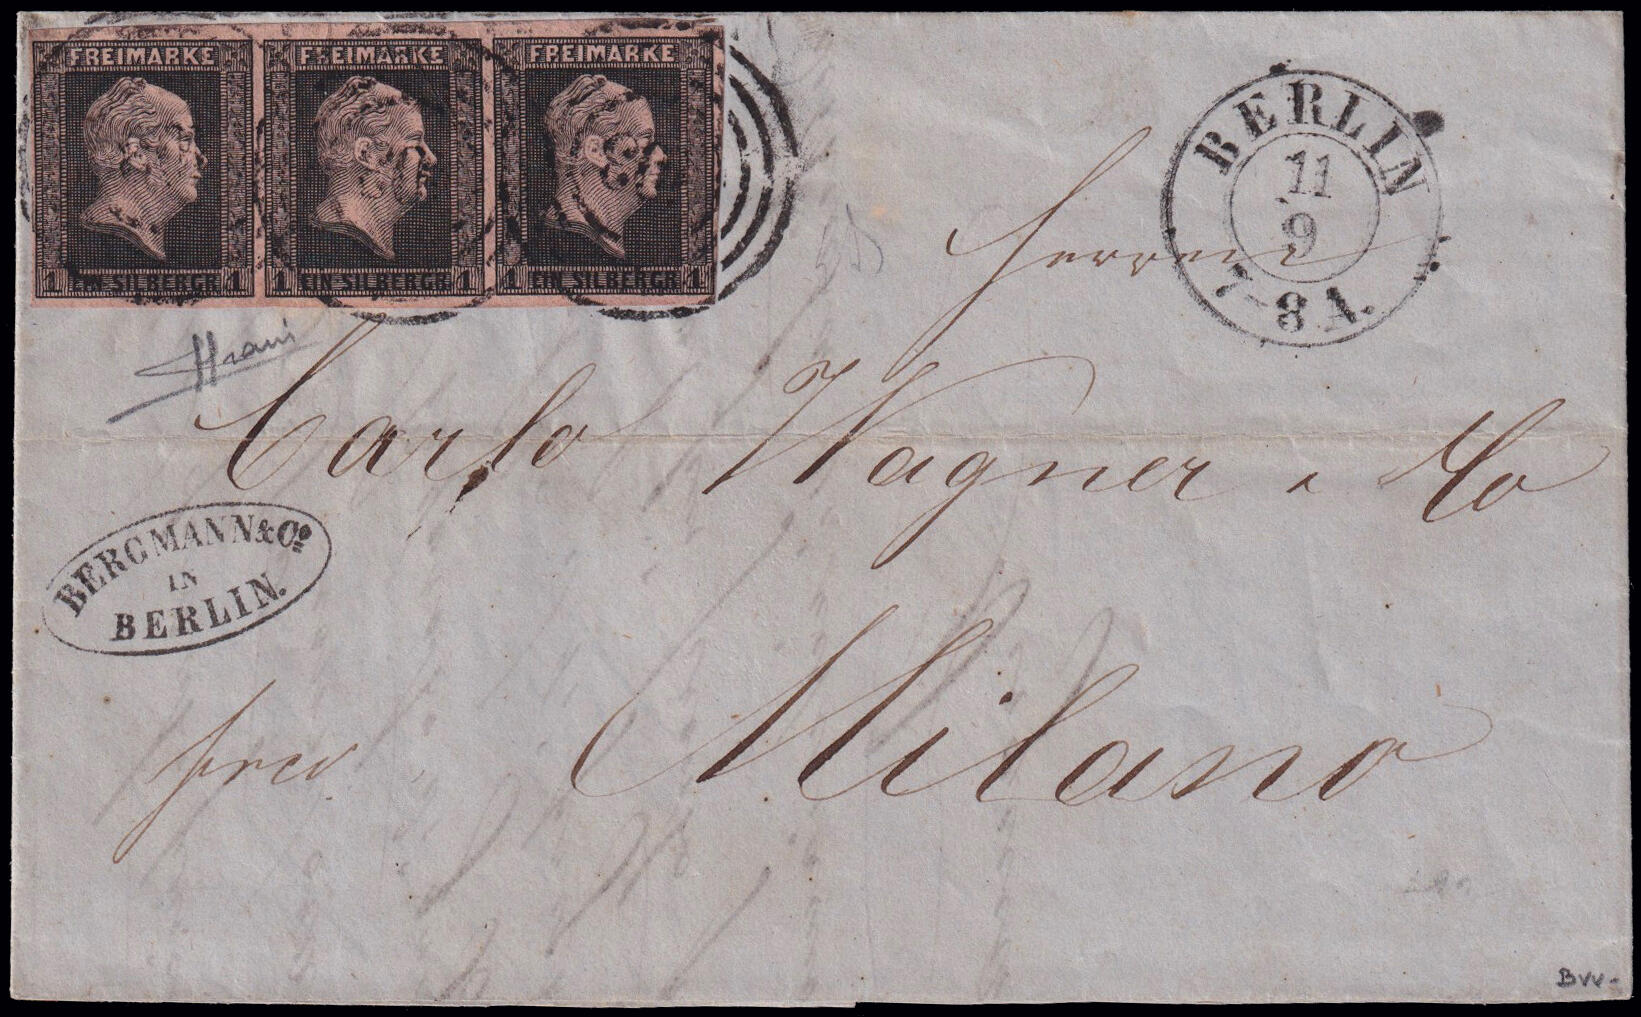 FREIMARKE FREIMARKE FREIMARKE
1 EIN SILBERGR. 1 1 EIN SILBERGR. 1 1 EIN SILBERGR. 1
BERLIN
11
9
7-8 A.
Herren
Carlo Wagner & Co
BERGMANN & Co.
IN
BERLIN.
Milano
frco